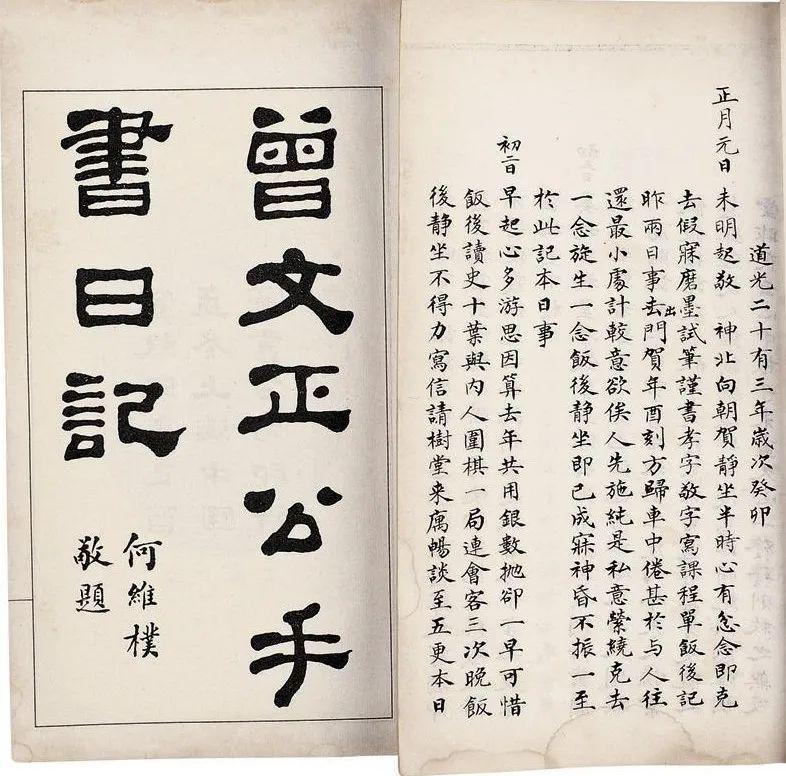 曾文正公手
書日記
何維樸
敬題
道光二十有三年歲次癸卯
正月元日 未明起敬 神北向朝賀靜坐半時心有忿念即克
去假寐磨墨試筆謹書孝字敬字寫課程單飯後記
昨兩日事出門賀年酉刻方歸車中倦甚於与人往
還最小處計較意欲俟人先施純是私意縈繞克去
一念旋生一念飯後靜坐即已成寐神昏不振一至
於此記本日事
初二日 早起心多游思因算去年共用銀數拋卻一早可惜
飯後讀史十葉與内人圍棋一局連會客三次晚飯
後靜坐不得力寫信請樹堂来寓暢談至五更本日